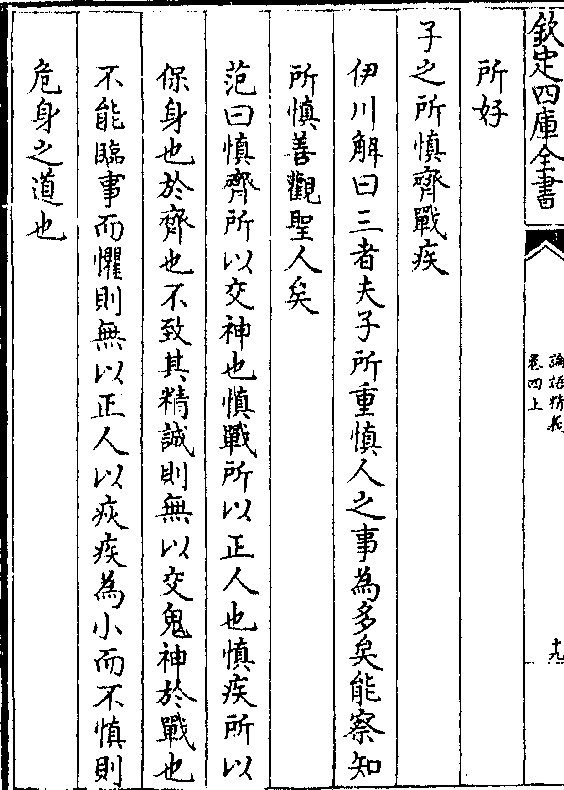 欽定四庫全書
論語精義
卷四上
十九
所好
子之所慎齊戰疾
伊川解曰三者夫子所重慎人之事為多矣能察知
所慎善觀聖人矣
范曰慎齊所以交神也慎戰所以正人也慎疾所以
保身也於齊也不致其精誠則無以交鬼神於戰也
不能臨事而懼則無以正人以疾疾為小而不慎則
危身之道也